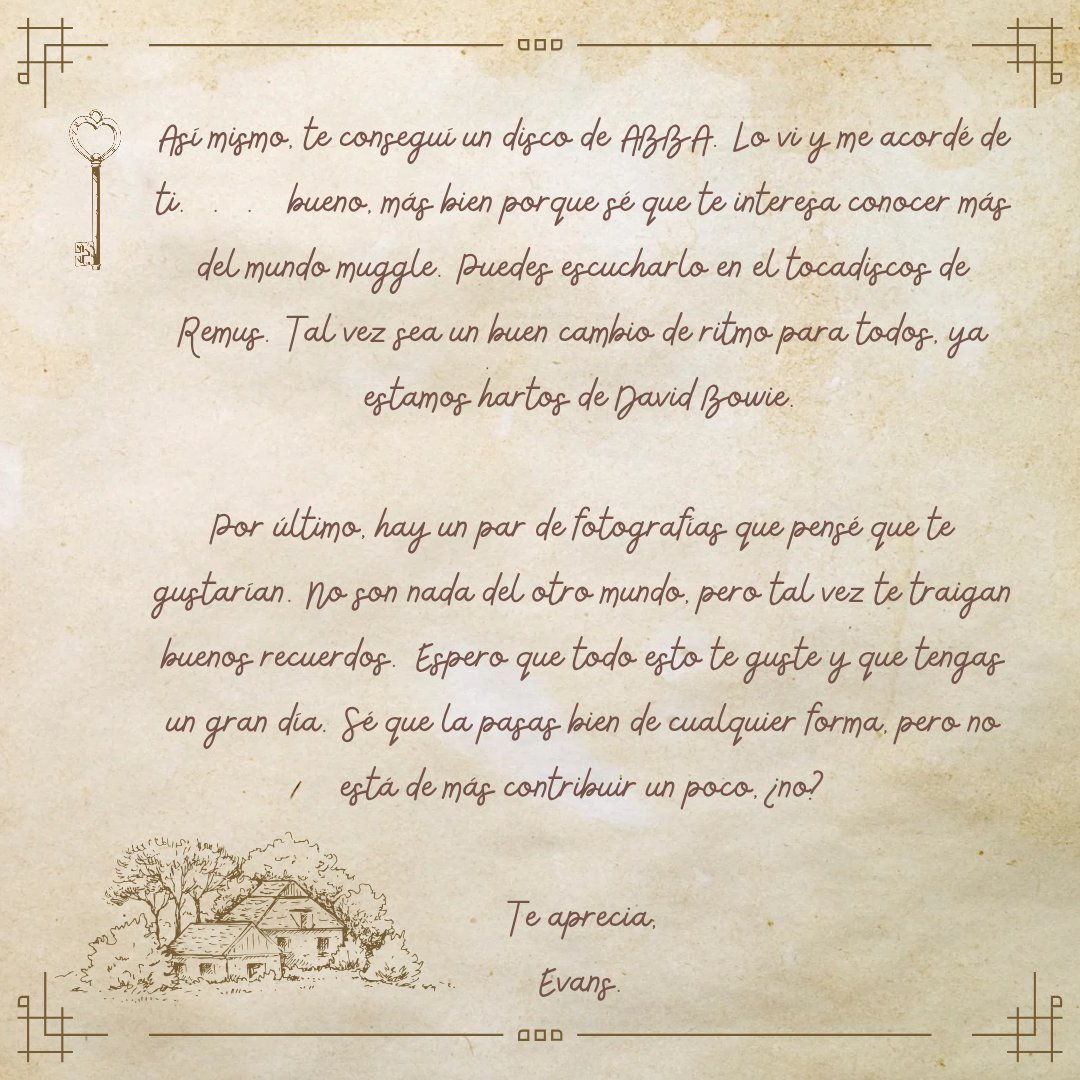 Así mismo, te conseguí un disco de ABBA. Lo vi y me acordé de
ti. . . bueno, más bien porque sé que te interesa conocer más
del mundo muggle. Puedes escucharlo en el tocadiscos de
Remus. Tal vez sea un buen cambio de ritmo para todos, ya
estamos hartos de David Bowie.
Por último, hay un par de fotografías que pensé que te
gustarían. No son nada del otro mundo, pero tal vez te traigan
buenos recuerdos. Espero que todo esto te guste y que tengas
un gran día. Sé que la pasas bien de cualquier forma, pero no
está de más contribuir un poco, ¿no?
Te aprecia,
Evans.